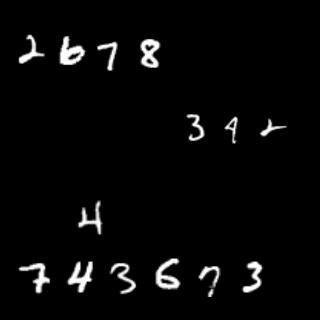 2678
342
4
743673